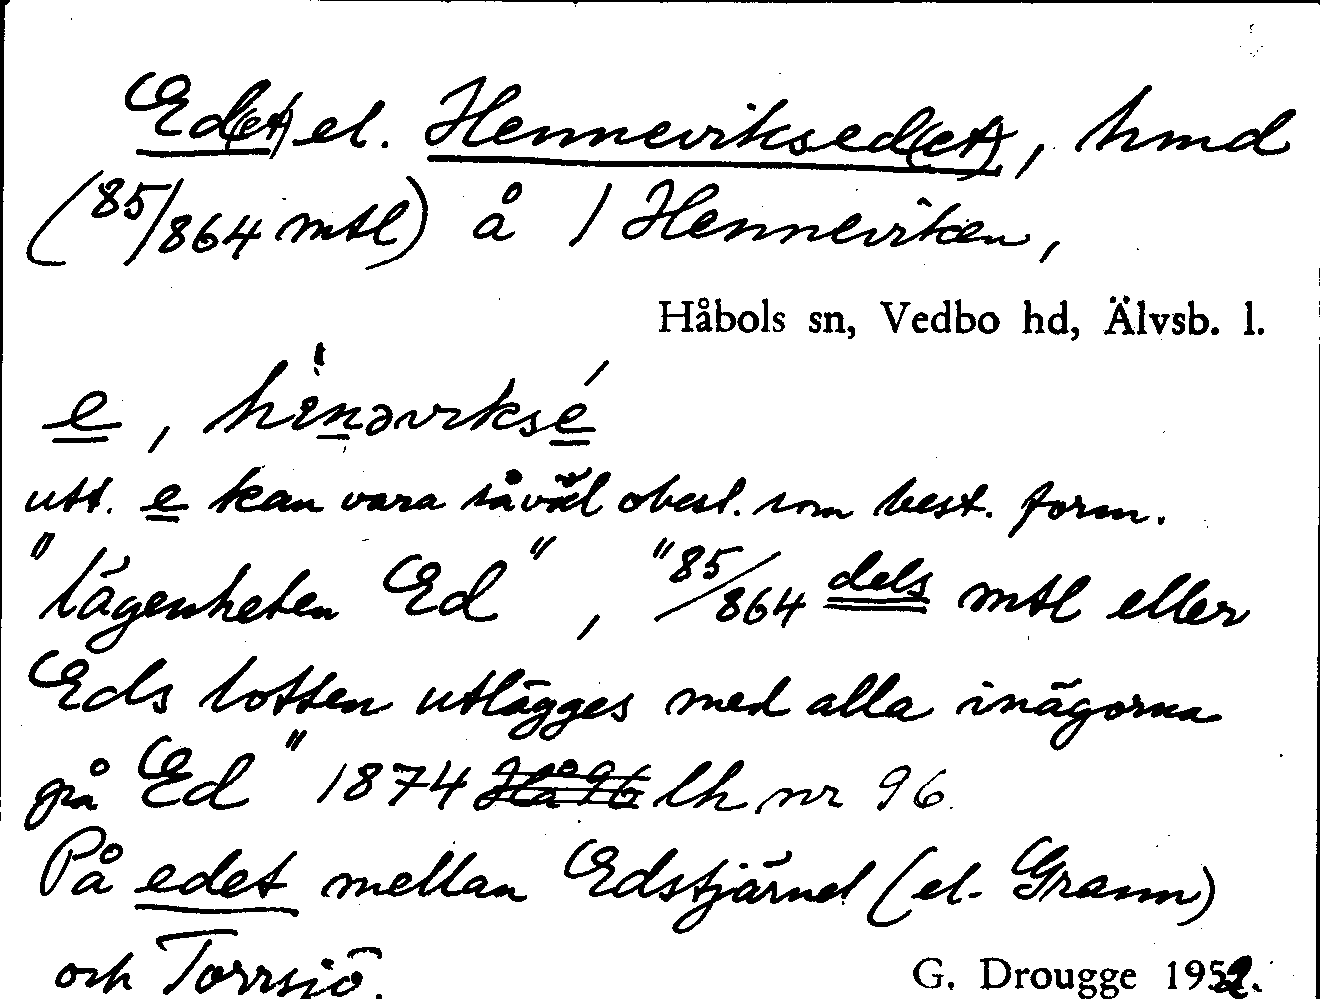 Ed(et) el. Henneviksed(et), hmd
(85/864 mtl) å 1 Henneviken,
Håbols sn, Vedbo hd, Älvsb. l.
e, hinəviksé
utt. e kan vara såväl obest. som best. form.
"lägenheten Ed", "85/864 dels mtl eller
Eds lotten utlägges med alla inägorna
på Ed" 1874 Hå 96 lh nr 96.
På edet mellan Edstjärnet (el. Grann)
och Torrsjö.
G. Drougge 1952.